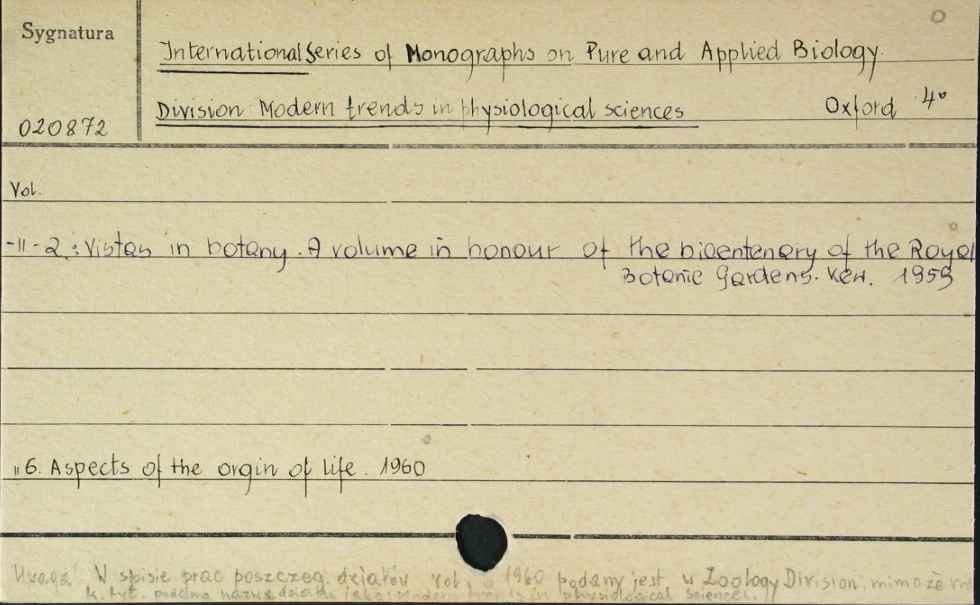 Sygnatura
International Series of Monographs on Pure and Applied Biology.
Division Modern trends in physiological sciences Oxford 4°
020872
Vol.
-11-2.: Vistas in botany. A volume in honour of the bicentenary of the Royal
Botanic Gardens. Kew. 1959
" 6. Aspects of the orgin of life. 1960
Uwaga! W spisie prac poszczeg. działów vol. 1960 podany jest w Zoology Division, mimo że
k. tyt. podaje nazwę działu jako: Modern trends in physiological sciences.